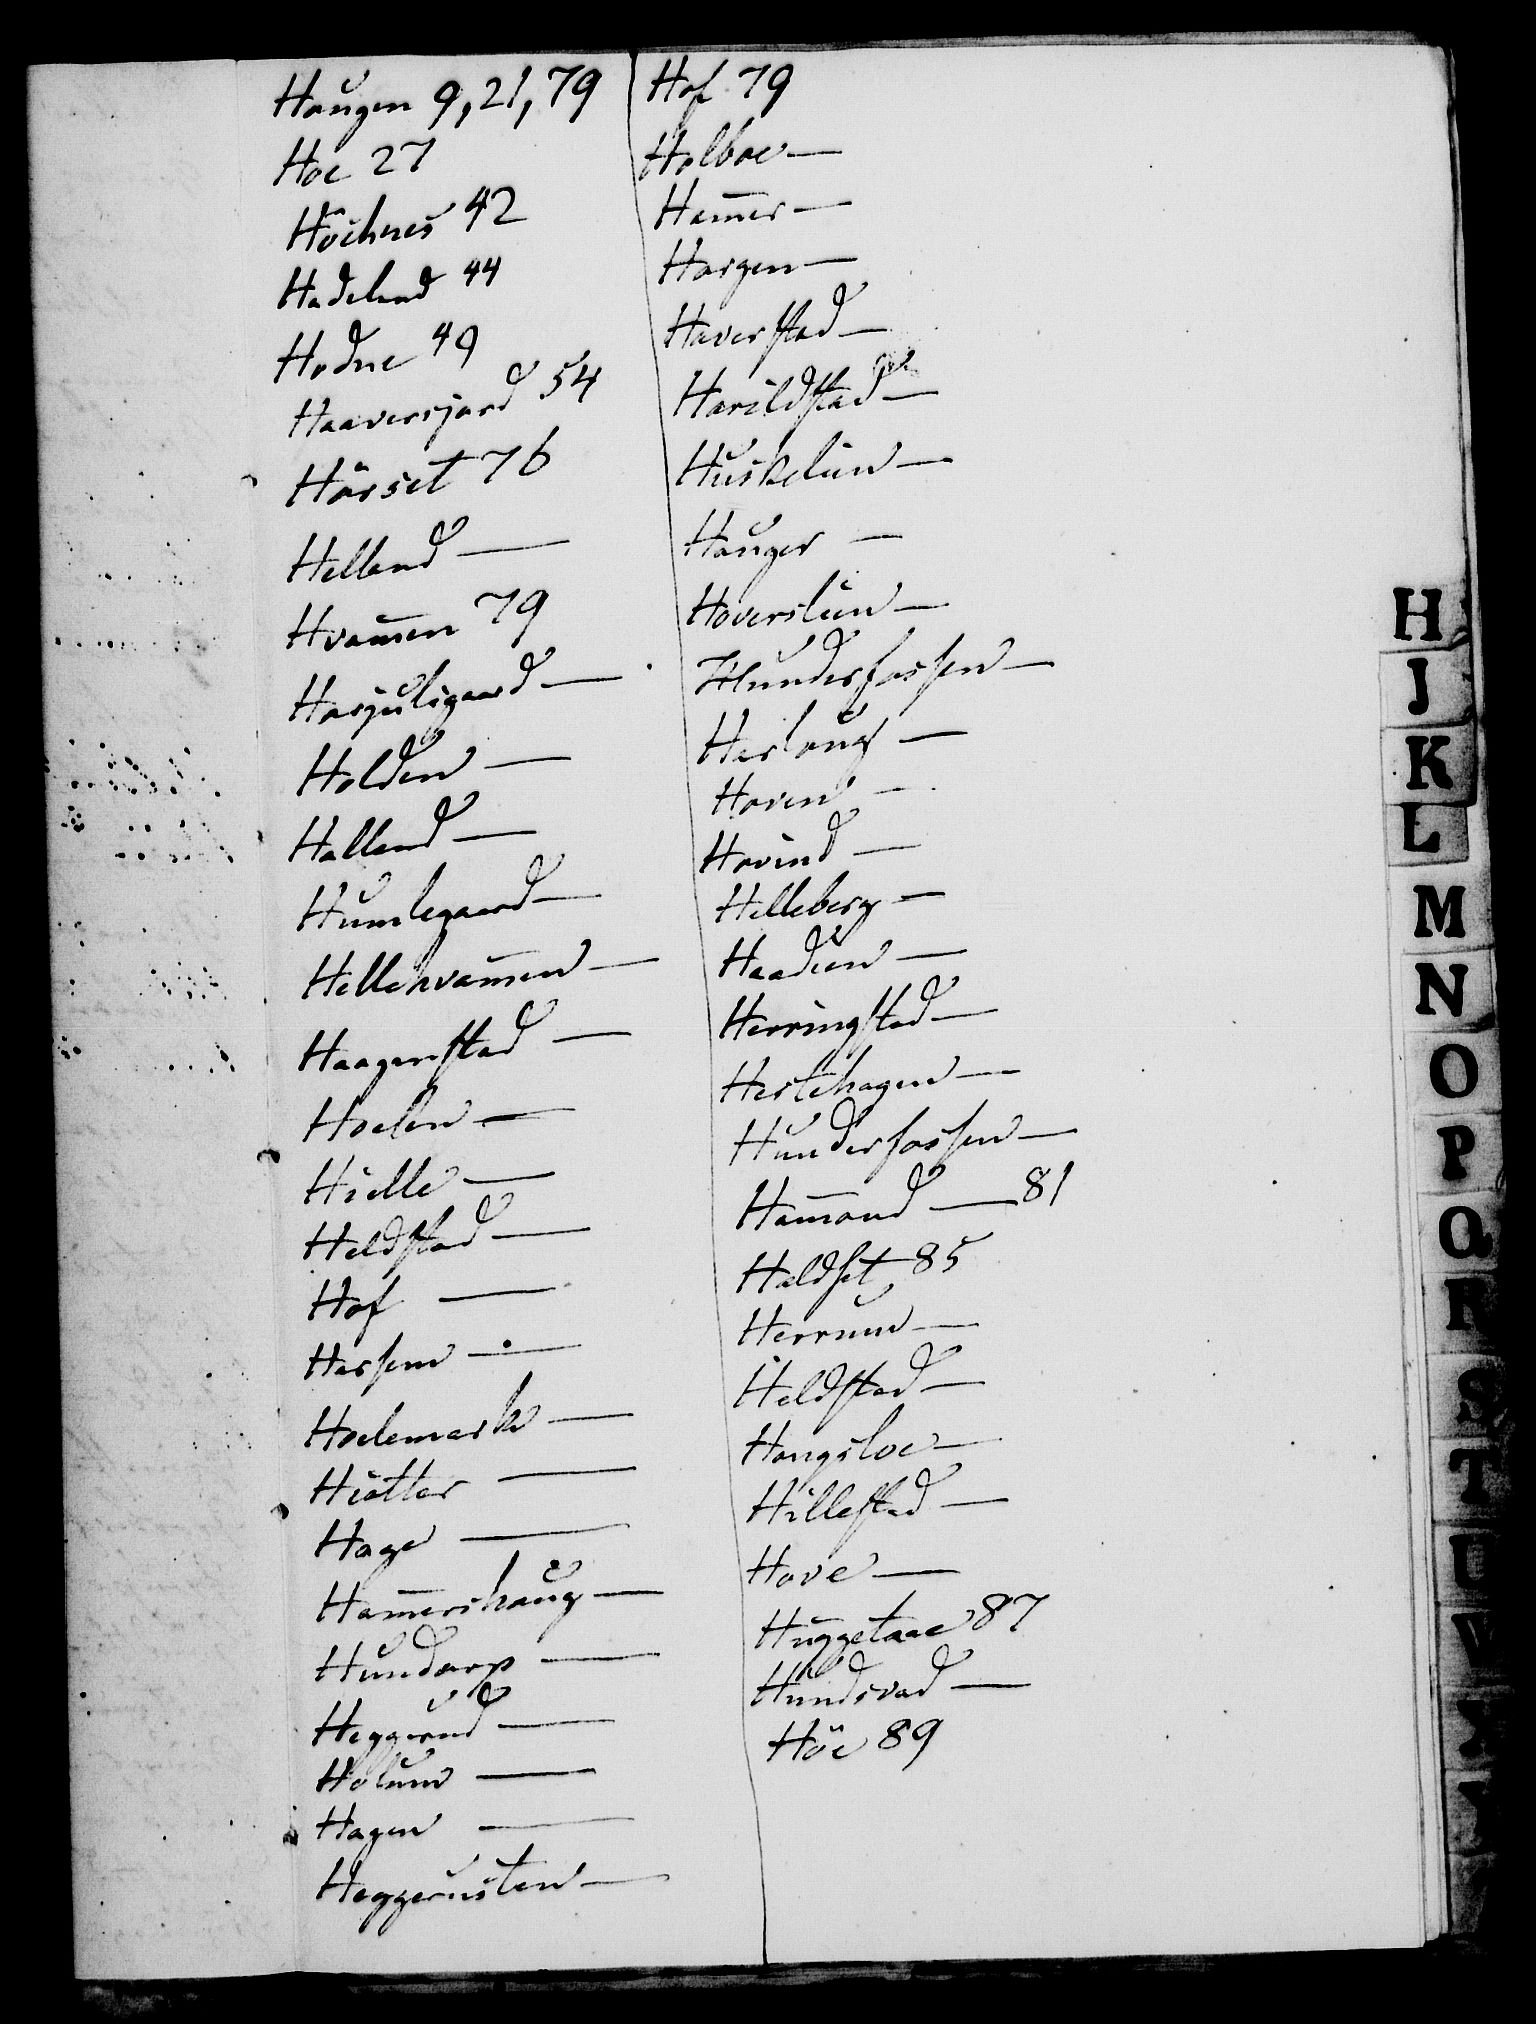 Haugen 9, 21, 79
Hoe 27
Höihnes 42
Hadeland 44
Hodne 49
Haaversjord 54
Hörset 76
Helland —
Hvam̄en 79
Harjuligaard —
Holden —
Halland —
Humlegaard —
Hellehvam̄en —
Haagenstad —
Hoelen —
Hielle —
Heldstad —
Hof —
Harsem —
Hoelemark —
Hiatter —
Hage —
Ham̄ershaug —
Hundorp —
Heggerud —
Holum —
Hagen —
Heggerusten —
Hof 79
Holboe —
Ham̄er —
Horgen —
Haverstad —
Harildstad —
Huskelien —
Hauger —
Hoverslien —
Hunderfossen —
Herlaug —
Hoven —
Hovind —
Helleberg —
Haadem —
Herringstad —
Hestehagen —
Hunderfossen —
Ham̄ond — 81
Haldset 85
Herrum —
Heldstad —
Hongsloe —
Hillestad —
Hove —
Huggetaae 87
Hundsvad —
Höe 89
H
J
K
L
M
N
O
P
Q
R
S
T
U